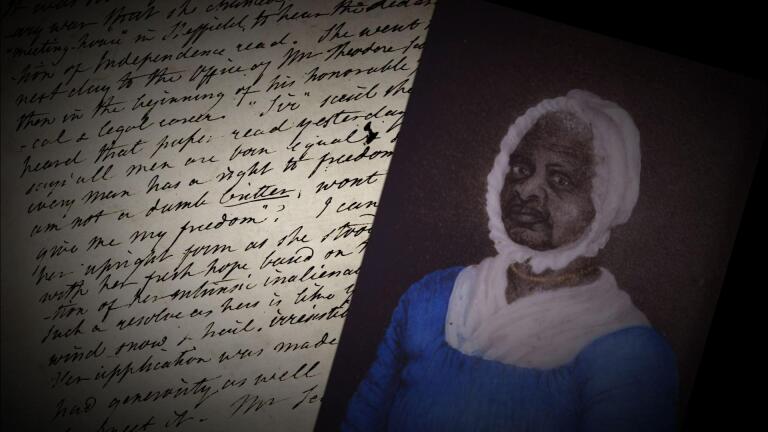 any was that she chanced
"meeting-house" in Sheffield, to hear the Declara
-tion of Independence read. She went
next day to the office of Mr Theodore Se
then in the beginning of his honorable
-cal & legal career. "Sir" said she
heard that paper read yesterday
says all men are born equal,
every man has a right to freedom
am not a dumb critter; wont
give me my freedom"? I can
her upright form as she stood
with her fresh hope based on
-tion of her intrinsic inaliena
such a resolve as hers is like
wind snow & hail, irresistib
Her application was made
had generosity as well
it. Mr Se